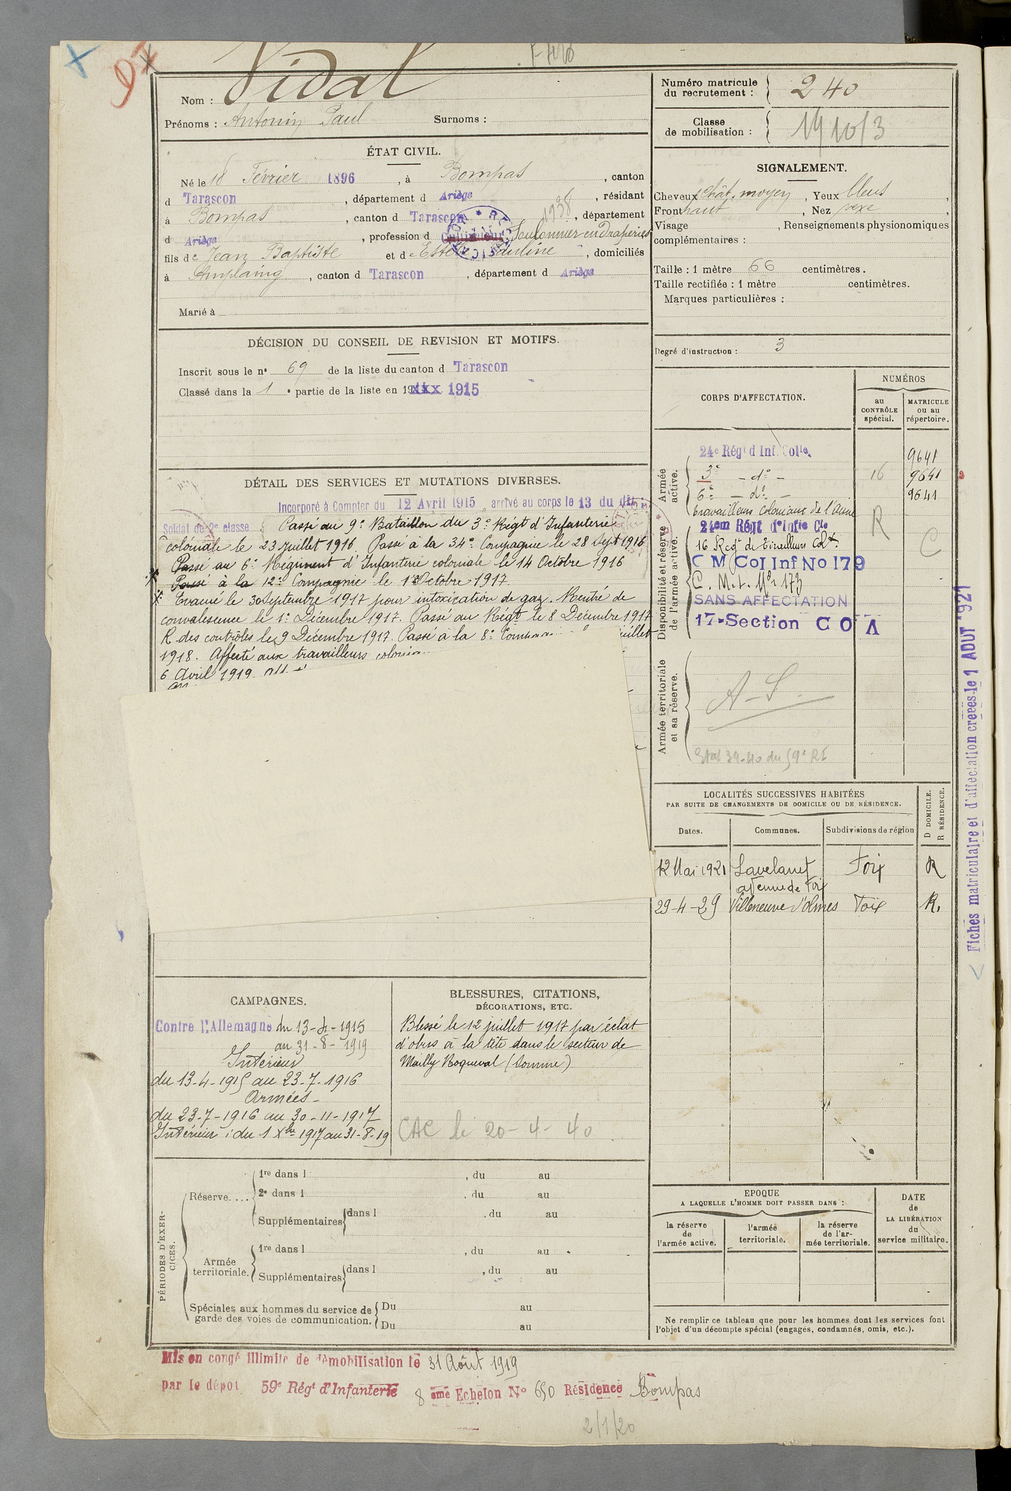 97
Nom : Vidal
Prénoms : Antonin Paul Surnoms :
ÉTAT CIVIL.
Né le 18 Février 1896, à Bompas, canton
d Tarascon, département d Ariège, résidant
à Bompas, canton d Tarascon, département
d Ariège, profession d Cultivateur
1938
fils de Jean Baptiste et d Pauline, domiciliés
à Amplaing, canton d Tarascon, département d Ariège
Marié à
DÉCISION DU CONSEIL DE REVISION ET MOTIFS.
Inscrit sous le n° 69 de la liste du canton d Tarascon
Classé dans la 1 e partie de la liste en 19xxx 1915
DÉTAIL DES SERVICES ET MUTATIONS DIVERSES.
Incorporé à Compter du 12 Avril 1915, arrivé au corps le 13 du dit
Soldat de 2e classe Passé au 9e Bataillon du 3e Régt d'Infanterie
coloniale le 23 Juillet 1916 Passé à la 34e Compagnie le 28 Sept 1916
Passé au 6e Régiment d'Infanterie coloniale le 14 Octobre 1916
Passé à la 12e Compagnie le 1 Octobre 1917
Evacué le 30 Septembre 1917 pour intoxication de gaz. Rentré de
convalescence le 1er Décembre 1917. Passé au Régt le 8 Décembre 1917
R des contrôles le 9 Décembre 1917. Passé à la 8e
1918. Affecté aux travailleurs
6 Avril 1919
Numéro matricule
du recrutement : 240
Classe
de mobilisation : 1910/3
SIGNALEMENT.
Cheveux chât. moyen, Yeux bleus,
Front haut, Nez vexe,
Visage , Renseignements physionomiques
complémentaires :
Taille : 1 mètre 66 centimètres.
Taille rectifiée : 1 mètre centimètres.
Marques particulières :
Degré d'instruction : 3
CORPS D'AFFECTATION.
NUMÉROS
au
CONTRÔLE
spécial.
MATRICULE
ou au
répertoire.
Armée
active.
24e Régt d'Inf Colle. 9641
3e - do - 16 9641
6e - do - 9641
travailleurs coloniaux de l'Aude
Disponibilité et réserve
de l'armée active.
24em Régt d'Infie Cle R
16 Regt de Tirailleurs Col. C
C M Col Inf No 179
C. M. I. No 179
SANS AFFECTATION
17e Section C O A
Armée territoriale
et sa réserve.
A-S.
59e RI
LOCALITÉS SUCCESSIVES HABITÉES
PAR SUITE DE CHANGEMENTS DE DOMICILE OU DE RÉSIDENCE.
Dates. Communes. Subdivisions de région
D DOMICILE.
R RÉSIDENCE.
12 Mai 1921 Lavelanet Foix R
avenue de Foix
29-4-29 Villeneuve d'Olmes Foix R.
Fiches matriculaire et d'affectation créées le 1 AOUT 1921
CAMPAGNES.
Contre l'Allemagne du 13-4-1915
au 31-8-1919
Intérieur
du 13-4-1915 au 23-7-1916
Armées-
du 23-7-1916 au 30-11-1917
Intérieur : du 1 Xbre 1917 au 31-8-19
BLESSURES, CITATIONS,
DÉCORATIONS, ETC.
Blessé le 12 juillet 1917 par éclat
d'obus à la tête dans le secteur de
Mailly Roqueval (Somme)
CAC le 20-4-40
PÉRIODES D'EXER-
CICES.
Réserve....
1re dans l , du au
2e dans l , du au
Supplémentaires dans l , du au
Armée
territoriale.
1re dans l , du au
Supplémentaires dans l , du au
Spéciales aux hommes du service de
garde des voies de communication.
Du au
Du au
EPOQUE
A LAQUELLE L'HOMME DOIT PASSER DANS :
la réserve
de
l'armée active.
l'armée
territoriale.
la réserve
de l'ar-
mée territoriale.
DATE
de
LA LIBÉRATION
du
service militaire.
Ne remplir ce tableau que pour les hommes dont les services font
l'objet d'un décompte spécial (engagés, condamnés, omis, etc.).
Mis en congé illimité de démobilisation le 31 Août 1919
par le dépot 59e Régt d'Infanterie 8 ème Echelon N° 650 Résidence Bompas
2/1/20